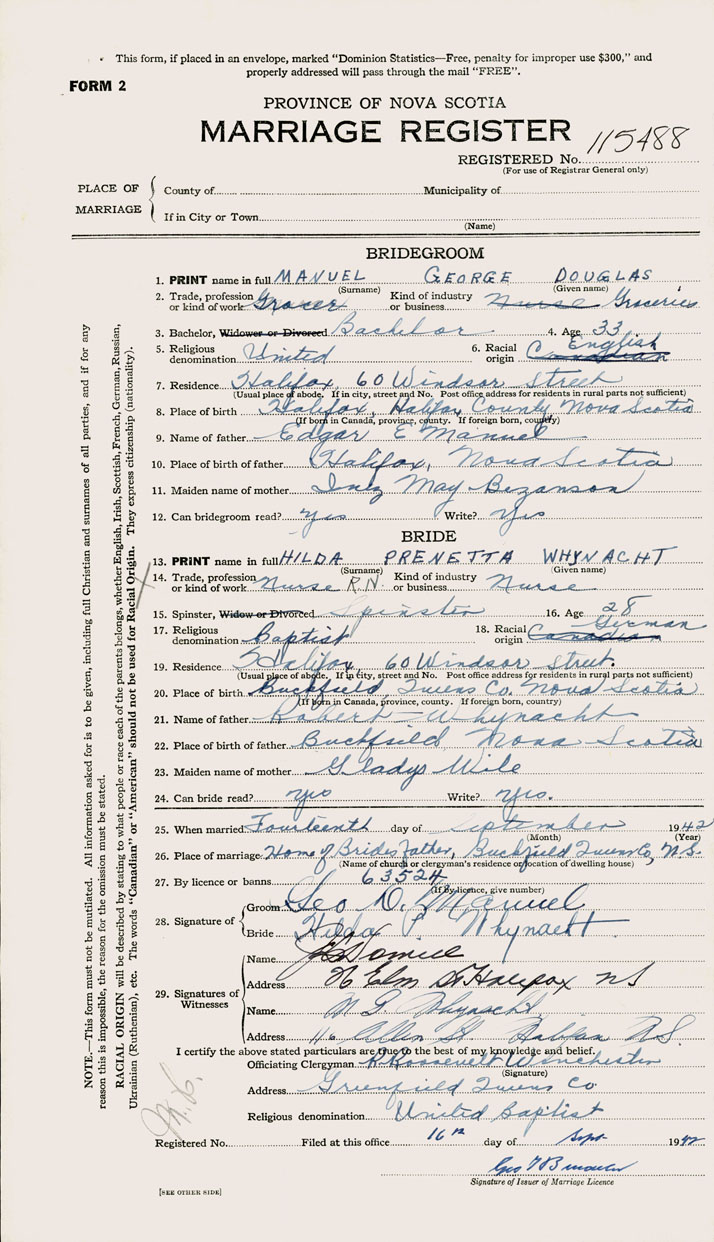 This form, if placed in an envelope, marked "Dominion Statistics—Free, penalty for improper use $300," and
properly addressed will pass through the mail "FREE".
FORM 2
PROVINCE OF NOVA SCOTIA
MARRIAGE REGISTER
115488
REGISTERED No.
(For use of Registrar General only)
PLACE OF MARRIAGE
County of Municipality of
If in City or Town
(Name)
BRIDEGROOM
1. PRINT name in full MANUEL GEORGE DOUGLAS
(Surname) (Given name)
2. Trade, profession or kind of work Grocer Kind of industry or business Nurse Groceries
3. Bachelor, Widower or Divorced Bachelor 4. Age 33
5. Religious denomination United 6. Racial origin Canadian English
7. Residence Halifax, 60 Windsor Street
(Usual place of abode. If in city, street and No. Post office address for residents in rural parts not sufficient)
8. Place of birth Halifax, Halifax County Nova Scotia
(If born in Canada, province, county. If foreign born, country)
9. Name of father Edgar E Manuel
10. Place of birth of father Halifax, Nova Scotia
11. Maiden name of mother Inez May Bezanson
12. Can bridegroom read? yes Write? yes
BRIDE
13. PRINT name in full HILDA PRENETTA WHYNACHT
(Surname) (Given name)
14. Trade, profession or kind of work Nurse R.N. Kind of industry or business Nurse
15. Spinster, Widow or Divorced Spinster 16. Age 28
17. Religious denomination Baptist 18. Racial origin Canadian German
19. Residence Halifax, 60 Windsor Street.
(Usual place of abode. If in city, street and No. Post office address for residents in rural parts not sufficient)
20. Place of birth Buckfield, Queens Co. Nova Scotia
(If born in Canada, province, county. If foreign born, country)
21. Name of father Robert Whynacht
22. Place of birth of father Buckfield Nova Scotia
23. Maiden name of mother Gladys Wile
24. Can bride read? yes Write? yes.
25. When married Fourteenth day of September 1942
(Month) (Year)
26. Place of marriage Home of Brides Father, Buckfield Queens Co, N.S.
(Name of church or clergyman's residence or location of dwelling house)
27. By licence or banns 63524
(If by licence, give number)
28. Signature of
Groom Geo D. Manuel
Bride Hilda P Whynacht
29. Signatures of Witnesses
Name
Address Elm St Halifax NS
Name M G Whynacht
Address 116 Allen St Halifax N.S.
I certify the above stated particulars are true to the best of my knowledge and belief.
Officiating Clergyman Roosevelt Winchester
(Signature)
Address Greenfield Queens Co
Religious denomination United Baptist
Registered No. Filed at this office 16th day of Sept. 1942
Signature of Issuer of Marriage Licence
[SEE OTHER SIDE]
NOTE.—This form must not be mutilated. All information asked for is to be given, including full Christian and surnames of all parties, and if for any
reason this is impossible, the reason for the omission must be stated.
RACIAL ORIGIN will be described by stating to what people or race each of the parents belongs, whether English, Irish, Scottish, French, German, Russian,
Ukrainian (Ruthenian), etc. The words "Canadian" or "American" should not be used for Racial Origin. They express citizenship (nationality).